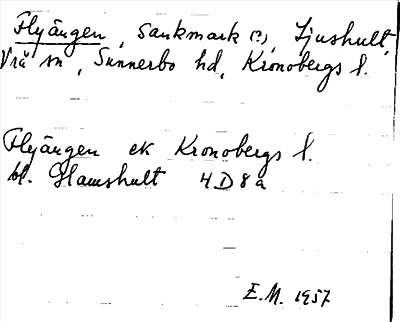 Flyängen, Sankmark (?), Ljushult,
Vrå sn, Sunnerbo hd, Kronobergs l.
Flyängen ek Kronobergs l.
bl. Hamshult 4 D 8 a
E.M. 1957